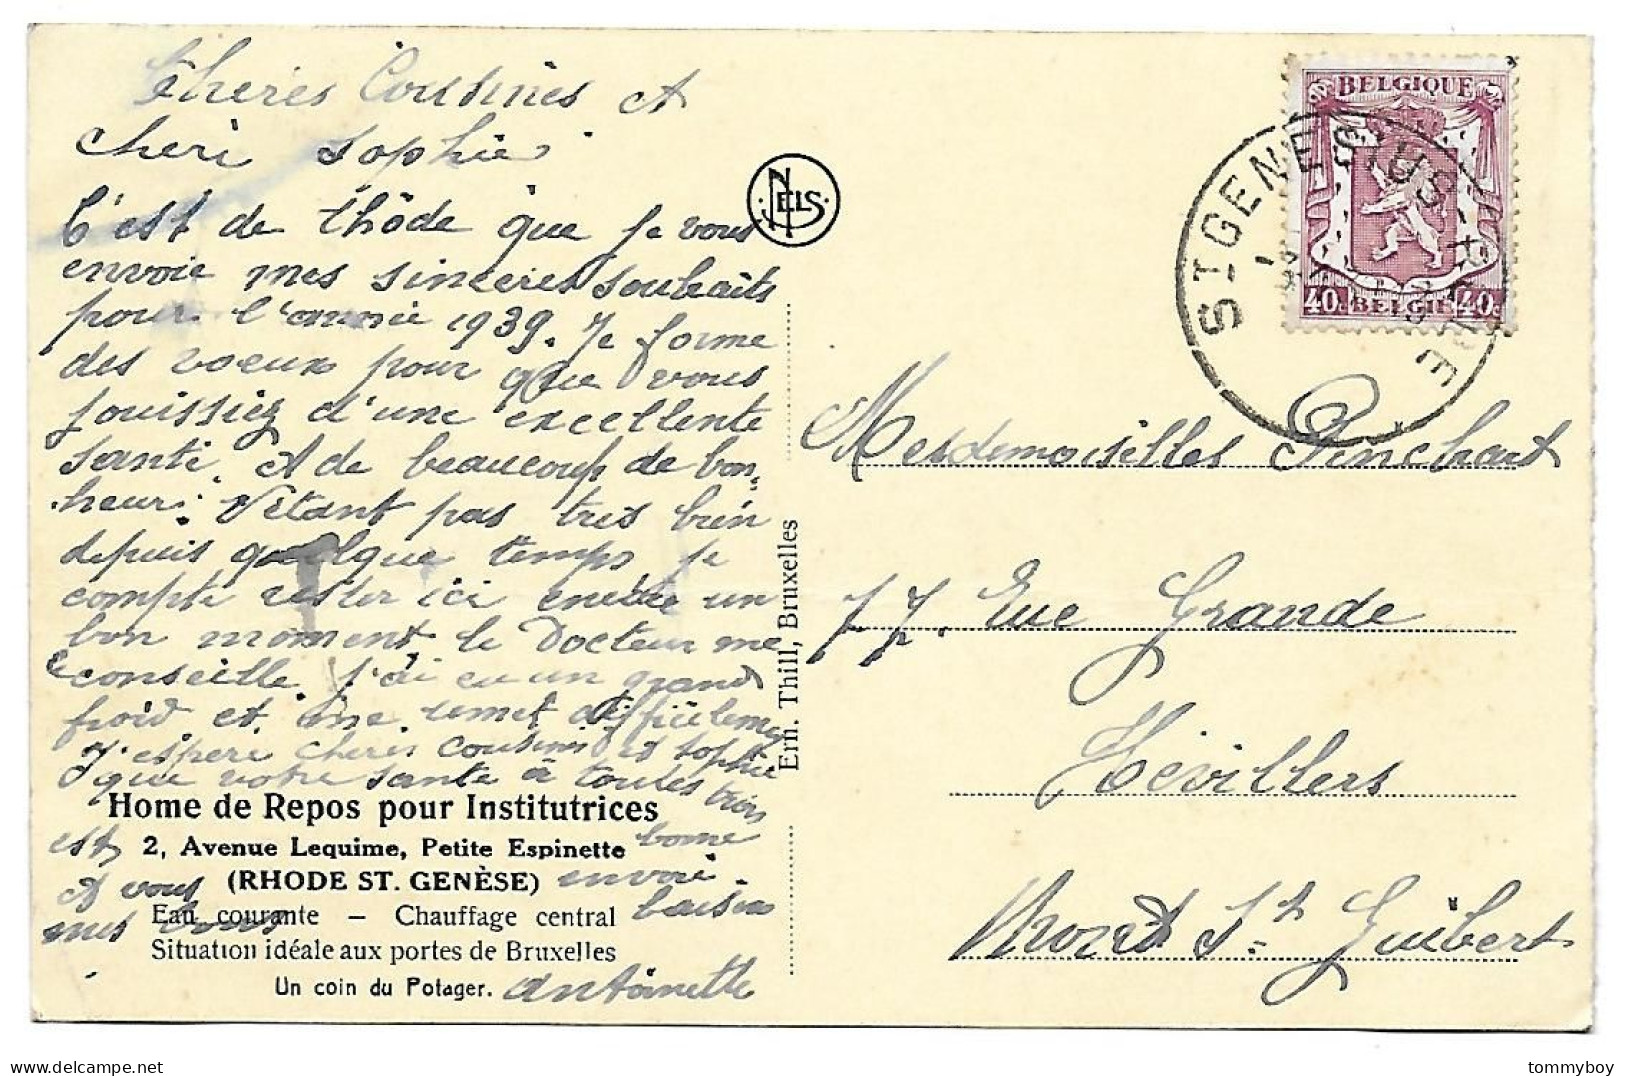 Chères Cousines et
cheri Sophie
C'est de Rhôde que je vous
envoie mes sinceres souhaits
pour l'année 1939. Je forme
des voeux pour que vous
jouissiez d'une excellente
santé. Et de beaucoup de bon-
heur. N'étant pas très bien
depuis quelque temps je
compte rester ici encore un
bon moment, le Docteur me
le conseille. J'ai eu un grand
froid et me remet difficilement
J'espere cheres cousines et Sophie
que votre santé à toutes trois
est bonne
A vous envoie
mes bons baisers
Antoinette
Home de Repos pour Institutrices
2, Avenue Lequime, Petite Espinette
(RHODE ST. GENÈSE)
Eau courante – Chauffage central
Situation idéale aux portes de Bruxelles
Un coin du Potager.
NELS
Ern. Thill, Bruxelles
BELGIQUE
40c BELGIË 40c
ST GENESIUS-RODE
Mesdemoiselles Pinchart
77. Rue Grande
Hévillers
Mont St. Guibert
tommyboy